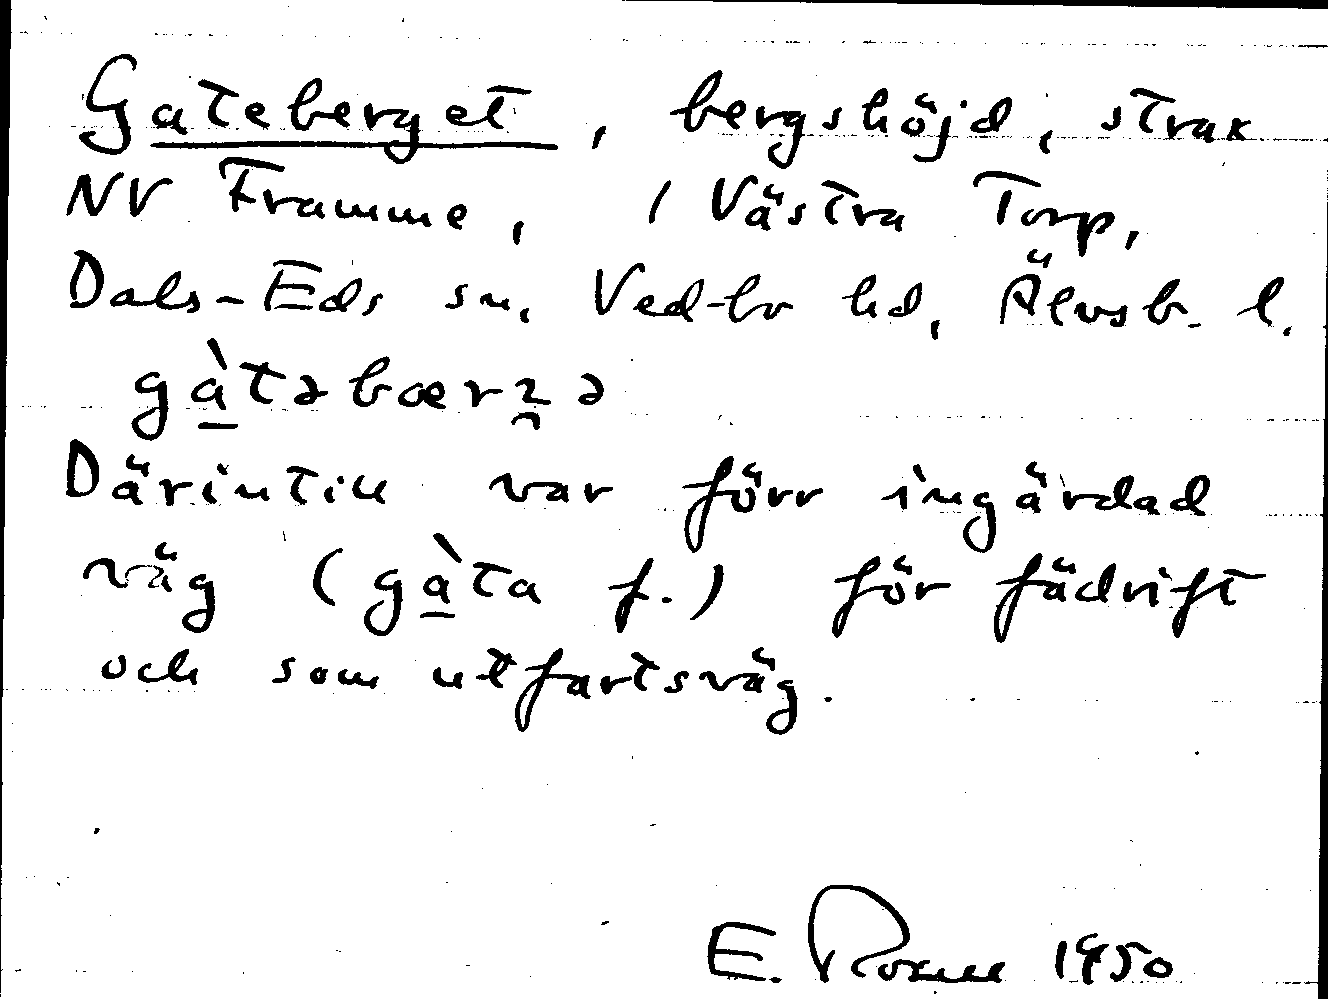 Gateberget, bergshöjd, strax
NV Framme, i Västra Torp,
Dals-Eds sn, Ved-bo hd, Älvsb. l.
gàtəbærgə
Därintill var förr ingärdad
väg (gàta f.) för fädrift
och som utfartsväg.
E. 1950